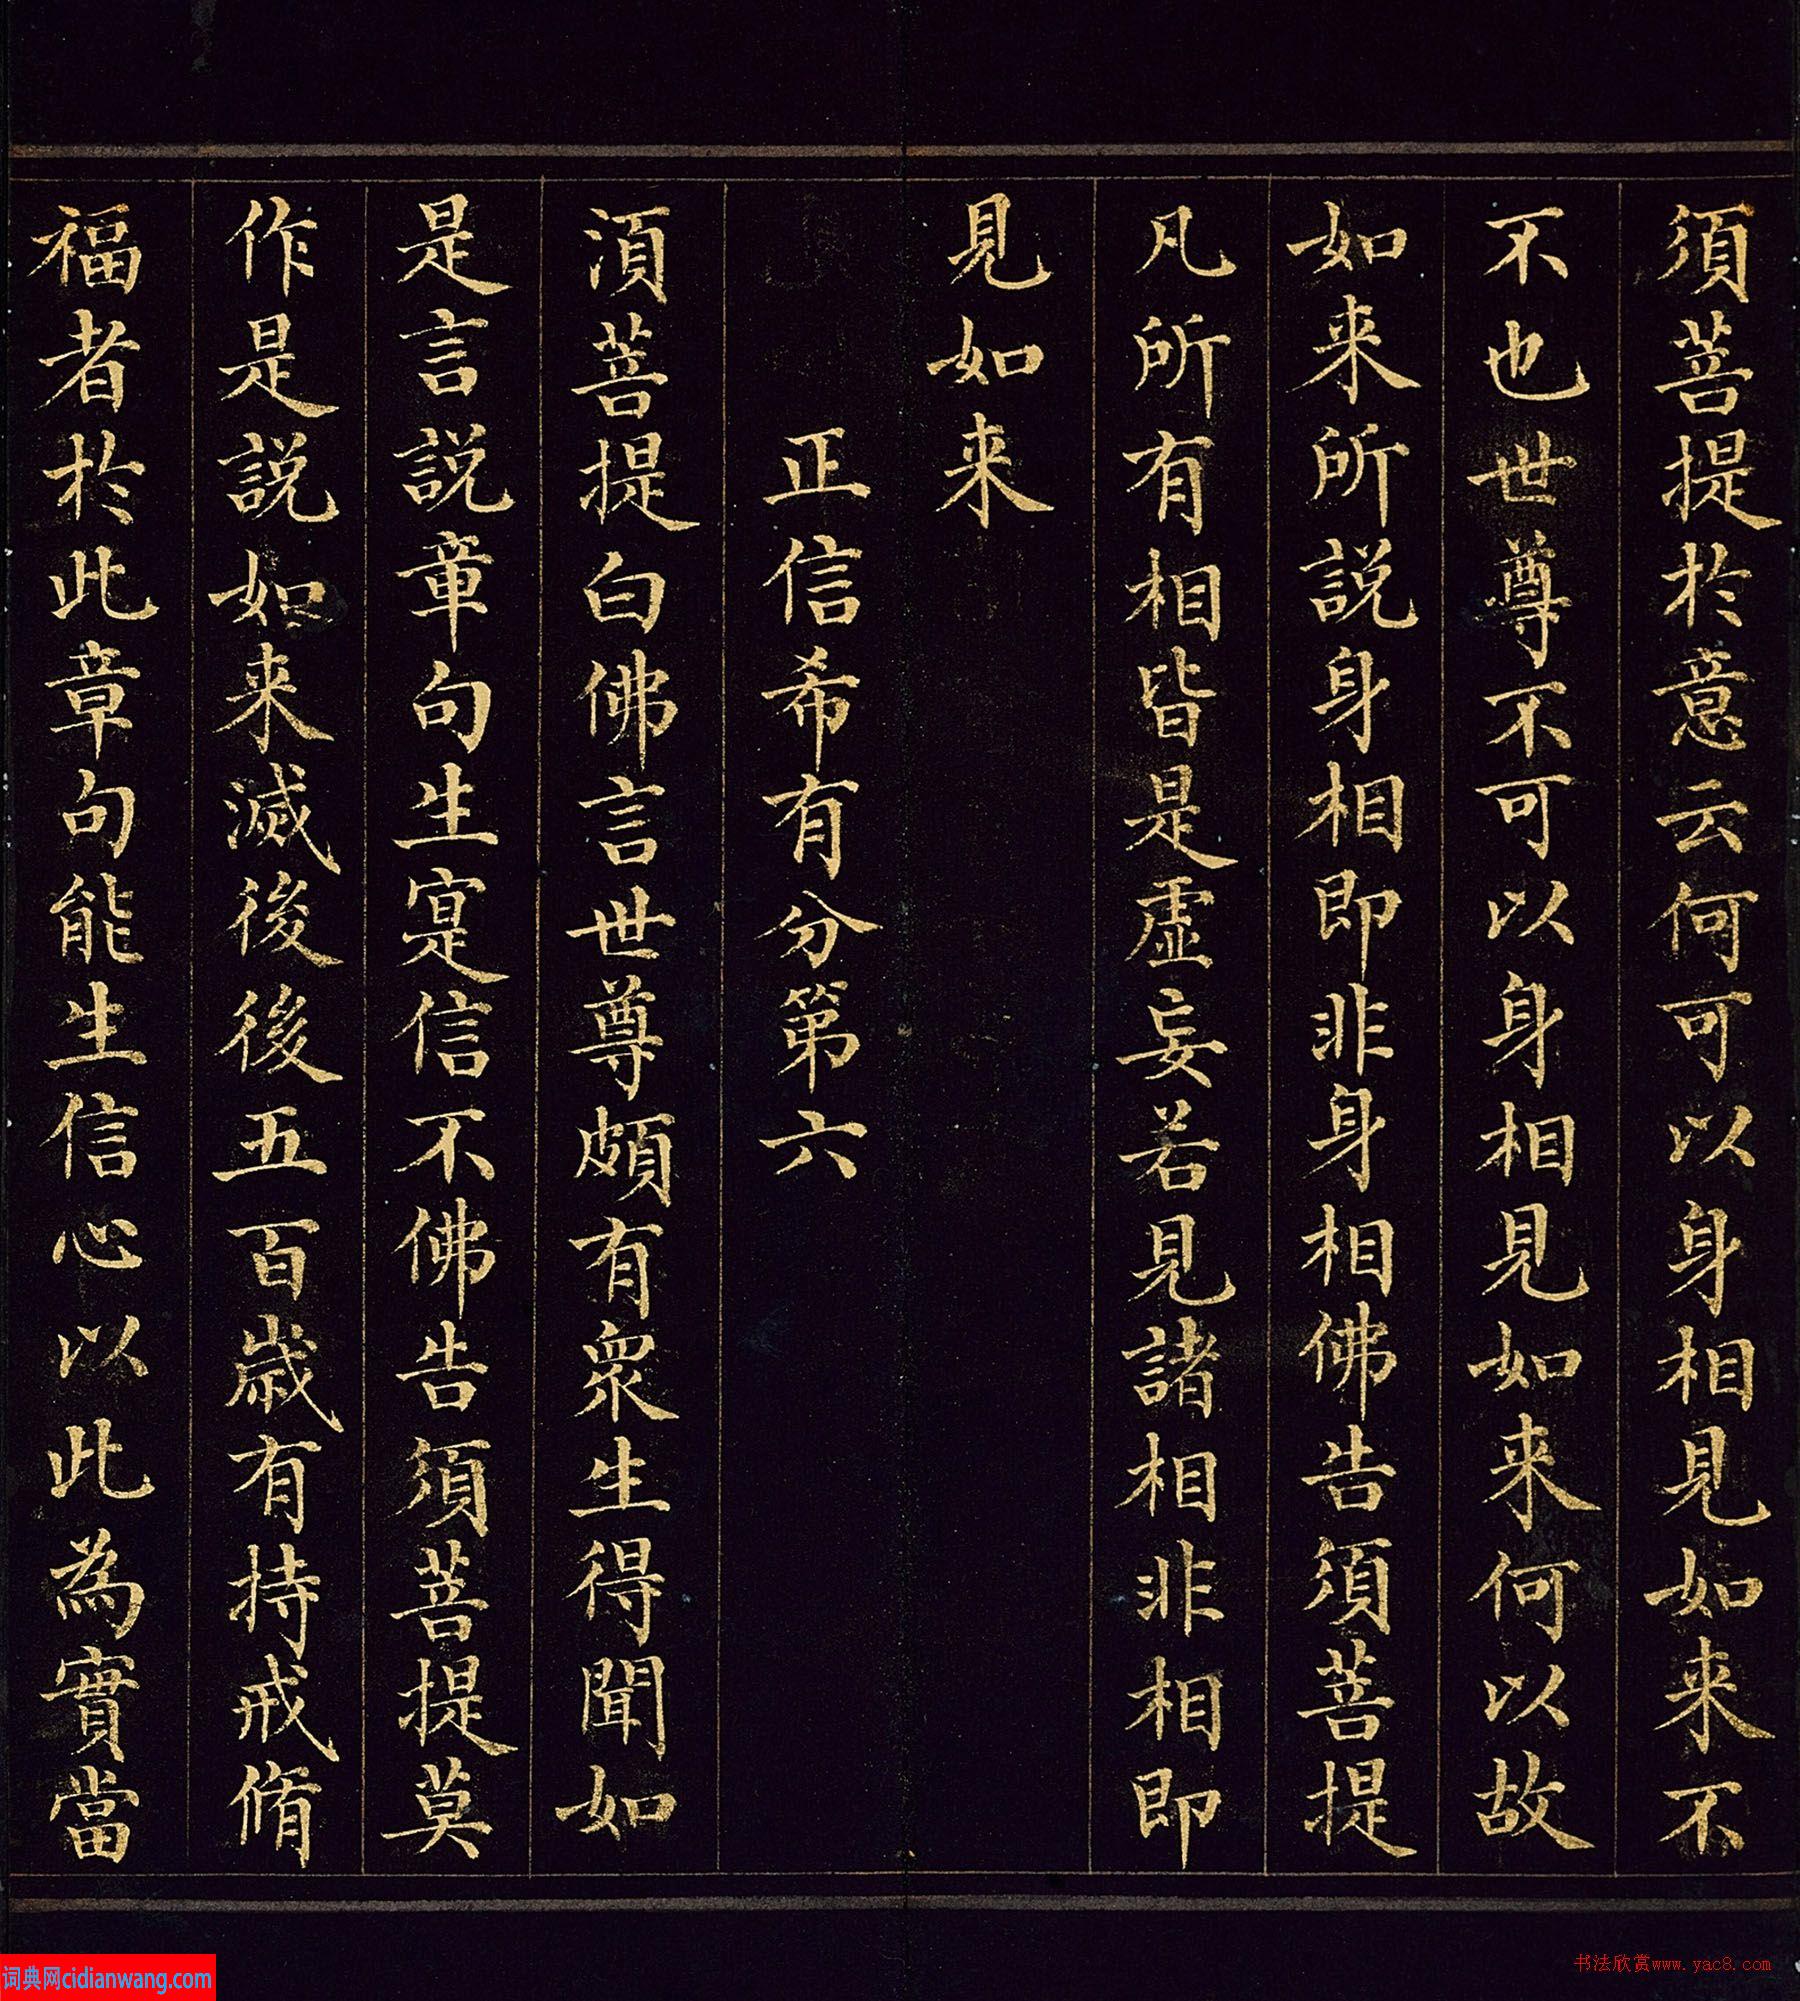 須菩提於意云何可以身相見如来不
不也世尊不可以身相見如来何以故
如来所説身相即非身相佛告須菩提
凡所有相皆是虚妄若見諸相非相即
見如来
正信希有分第六
湏菩提白佛言世尊頗有衆生得聞如
是言説章句生寔信不佛告須菩提莫
作是説如来滅後後五百歲有持戒脩
福者於此章句能生信心以此為實當
词典网cidianwang.com
书法欣赏www.yac8.com